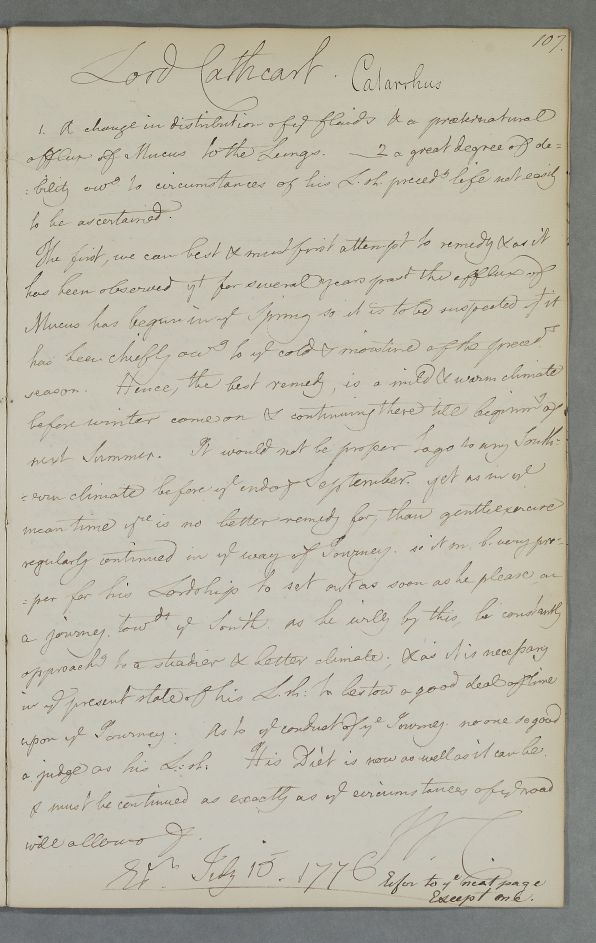 107.
Lord Cathcart. Catarrhus
1. A change in distribution of ye fluids & a præternatural
afflux of Mucus to the Lungs. — 2 a great degree of de=
=bility owg to circumstances of his L.sh. precedg life not easily
to be ascertained.
The first, we can best & must first attempt to remedy & as it
has been observed yt for several years past the afflux of
Mucus has begun in ye Spring so it is to be suspected yt it
has been chiefly owg to ye cold & moisture of the preced
season. Hence, the best remedy, is a mild & warm climate
before winter come on & continuing there till beginng of
next Summer. It would not be proper to go to any South=
=ern climate before ye end of September. yet as in ye
mean time yre is no better remedy for, than gentle exercise
regularly continued in ye way of Journey. so it m. b. very pro=
=per for his Lordship to set out as soon as he please on
a journey towds ye South as he will, by this, be constantly
approachg to a steadier & better climate, & as it is necessary
in ye present state of his L.sh: to bestow a good deal of time
upon ye Journey. As to ye conduct of ye Journey no one so good
a judge as his L:sh. His Diet is now as well as it can be
& must be continued as exactly as ye circumstances of ye road
will allow of.
WC
Edr July 15. 1776
Refer to ye next page
Except one.